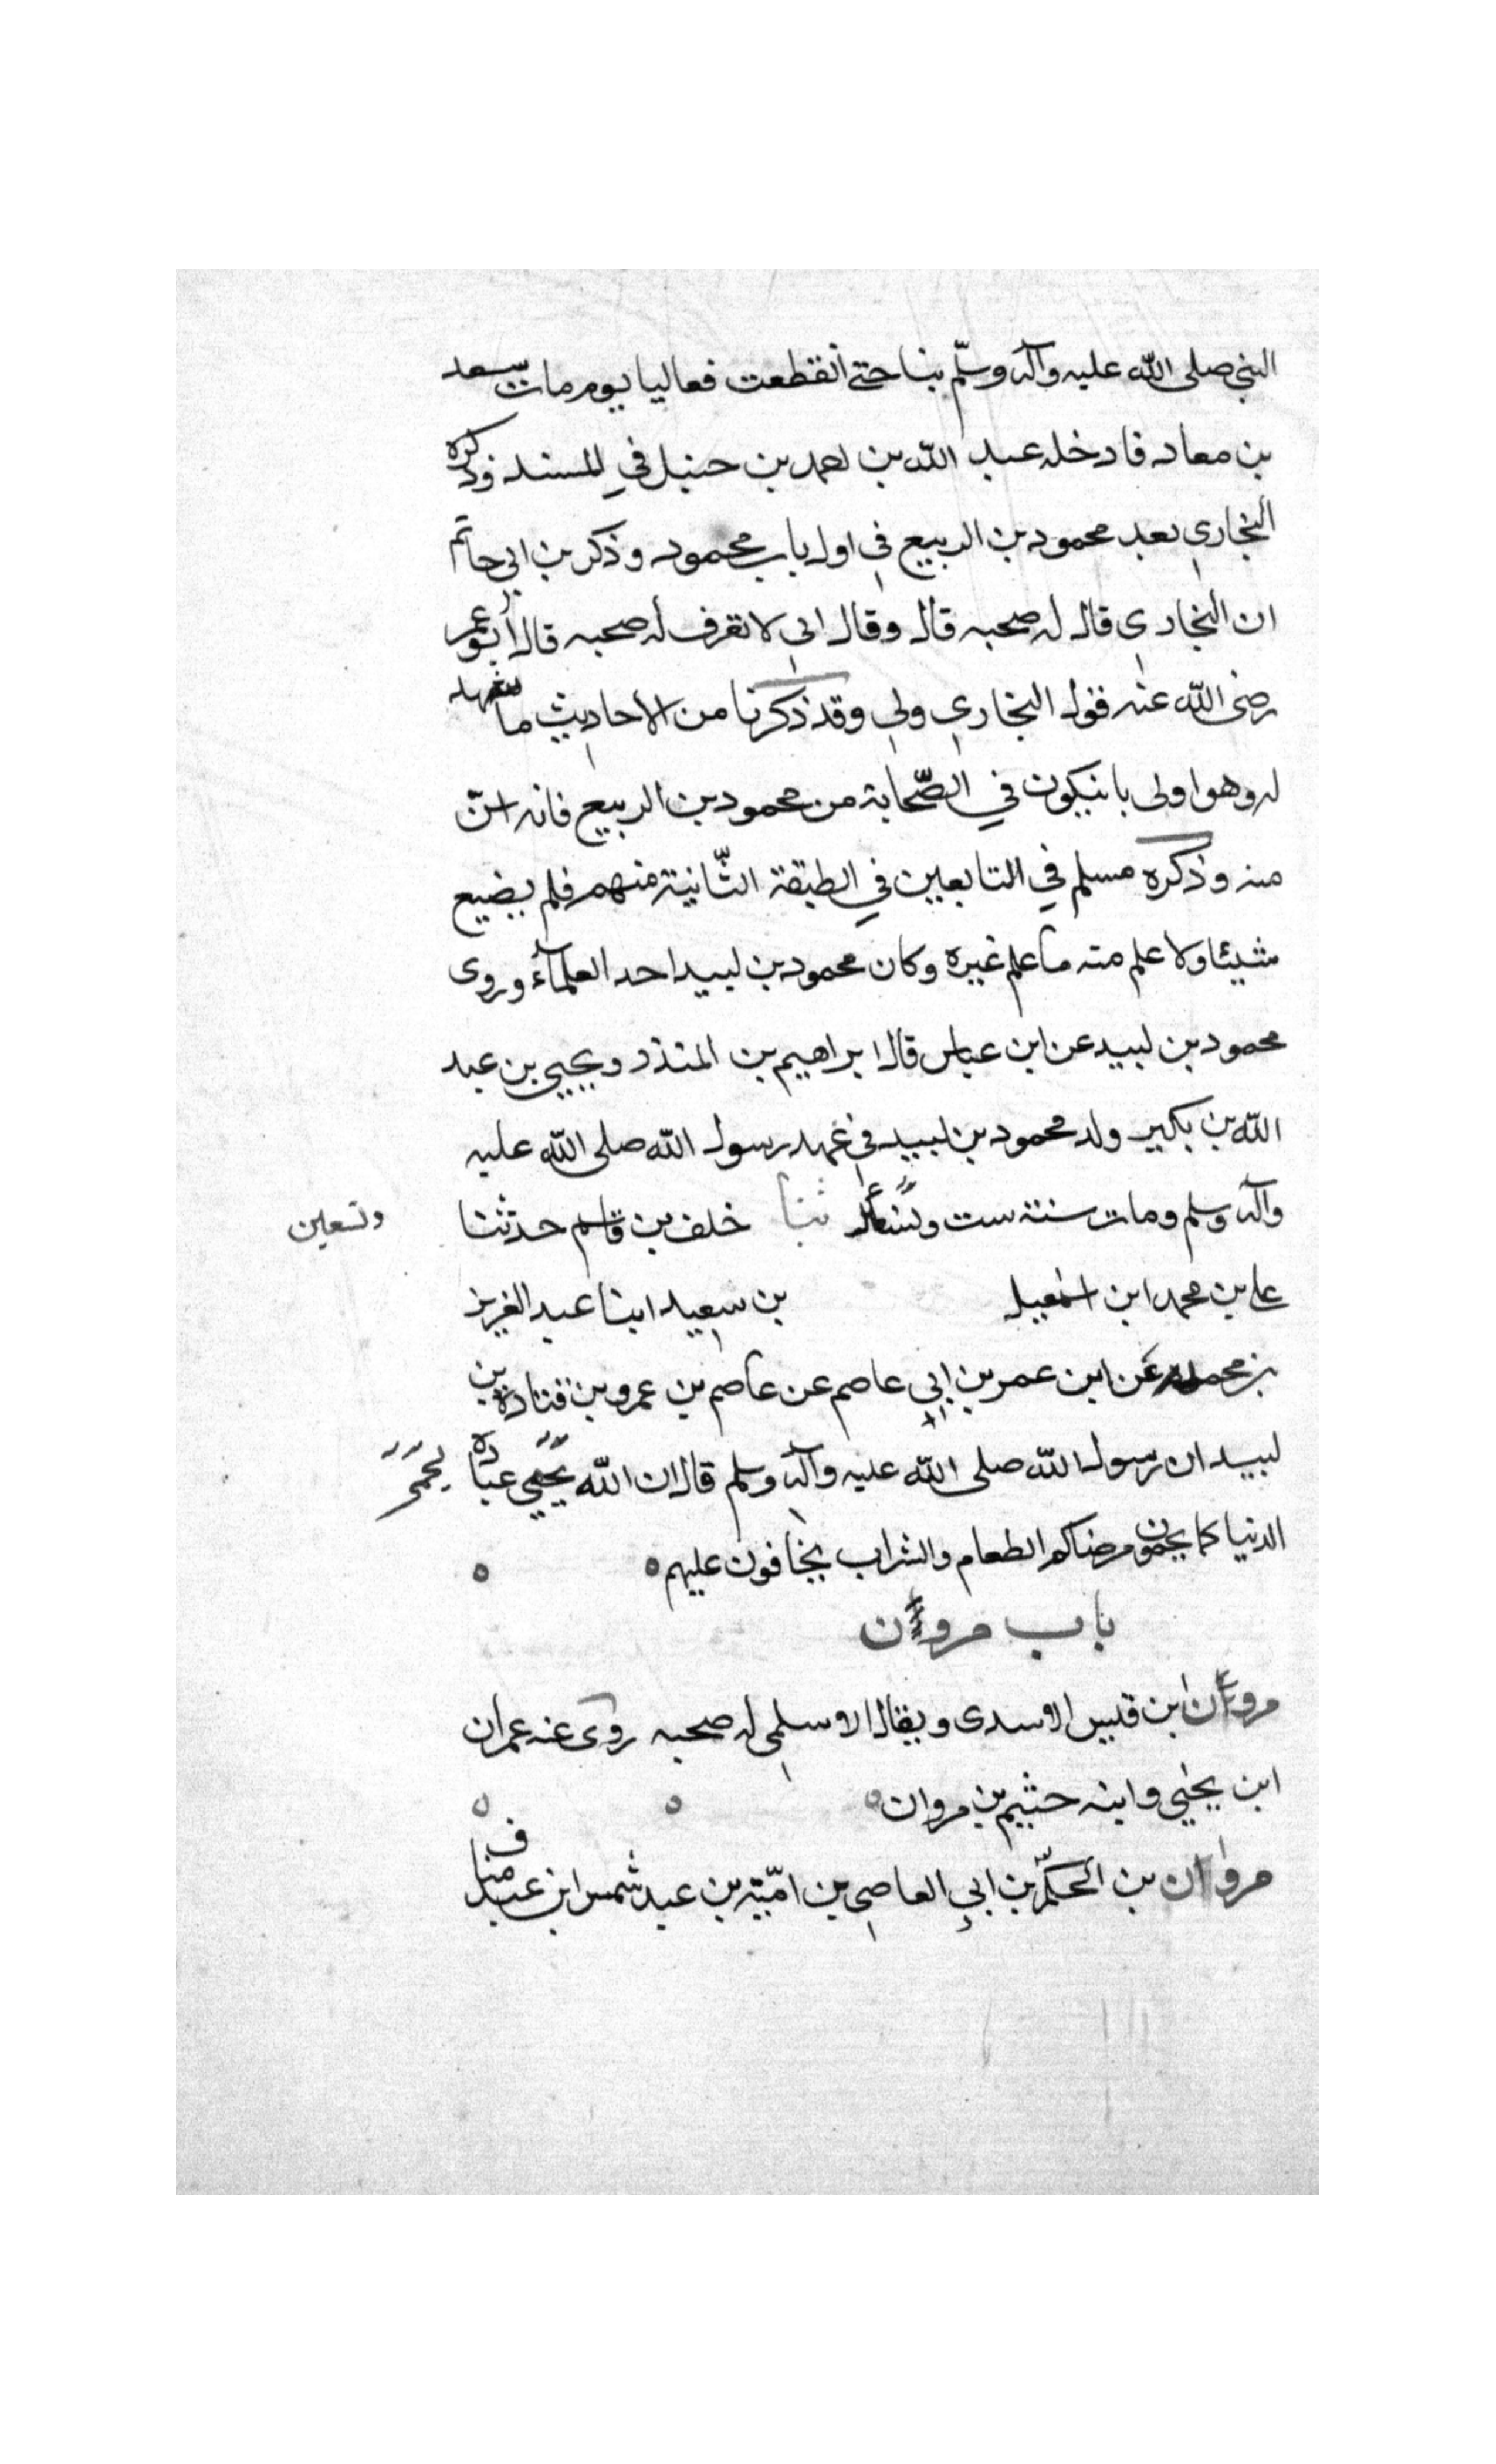 النبي صلى الله عليه وآله وسلم بنا حتى انقطعت فعالنا يوم مات سعد
بن معاد فادخله عبد الله بن احمد بن حنبل في المسند وذكره
البخاري بعد محمود بن الربيع في اول باب محمود وذكر بن ابي حاتم
ان البخاري قال له صحبه قال وقال ابي لا تعرف له صحبه قال أبو عمر
رضى الله عنه فقول البخاري ولى وقد ذكرنا من الاحاديث ما تشهد
له وهو اولى بان يكون في الصّحابة من محمود بن الربيع فانه اسنّ
منه وذكره مسلم في التابعين في الطبقة الثّانية منهم فلم يضيع
شيئا ولا علم منه ما علم غيره وكان محمود بن لبيد احد العلمآء وروى
محمود بن لبيد عن ابن عباس قال ابراهيم بن المنذر ويحيي بن عبد
الله بن بكير ولد محمود بن لبيد في عهد رسول الله صلى الله عليه
وآله وسلم ومات سنة ست ثنا خلف بن قاسم حدثنا
وتسعين
على بن محمد ابن اسمعيل بن سعيد ابنا عبد العزيز
بن محمد عن ابن عمر بن ابي عاصم عن عاصم بن عمرو بن قتادة بن
لبيد ان رسول الله صلى الله عليه وآله وسلم قال ان الله يحمي عباده
الدنيا كما يحمون مرضاكم الطعام والشراب يخافون عليهم
باب مروان
مروان ابن قيس الاسدى ويقال الاسلمي له صحبه روى عنه عمران
ابن يحيي وابنه خثيم بن مروان
مروان بن الحكم بن ابي العاصي بن اميّة بن عبد شمس ابن عبد مناف